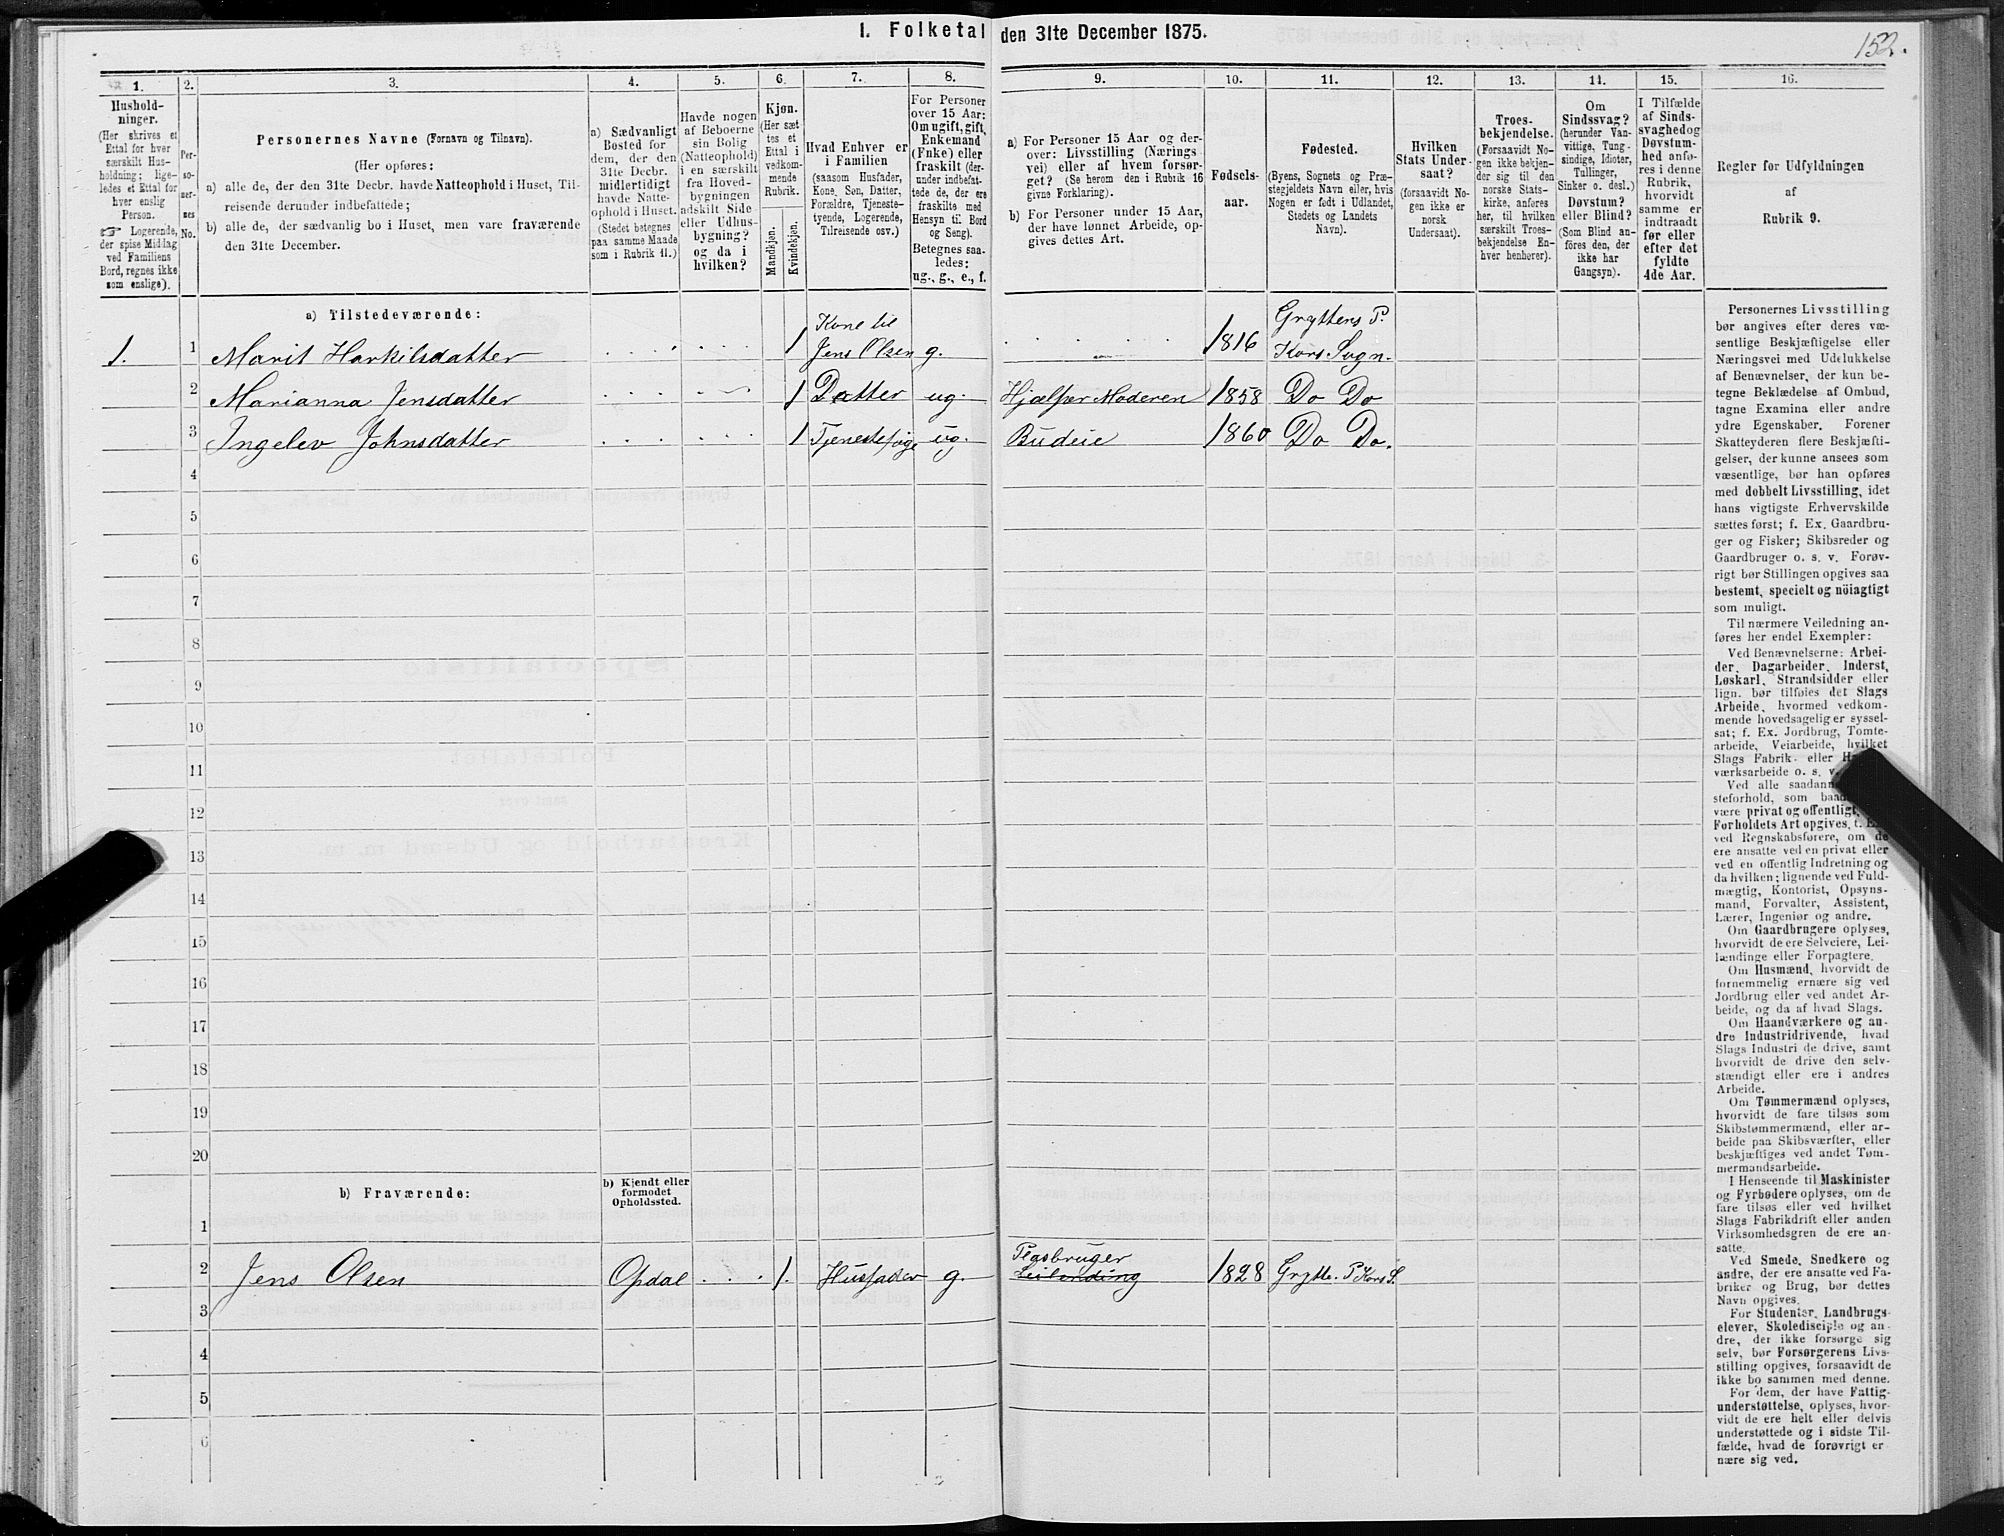 1. Folketal den 31te December 1875.
152.
1.
Hushold-
ninger.
(Her skrives et
Ettal for hver
særskilt Hus-
holdning; lige-
ledes et Ettal for
hver enslig
Person.
☞ Logerende,
der spise Middag
ved Familiens
Bord, regnes ikke
som enslige).
2.
Per-
so-
ner-
nes
No.
3.
Personernes Navne (Fornavn og Tilnavn).
(Her opføres:
a) alle de, der den 31te Decbr. havde Natteophold i Huset, Til-
reisende derunder indbefattede;
b) alle de, der sædvanlig bo i Huset, men vare fraværende
den 31te December.
4.
a) Sædvanligt
Bosted for
dem, der den
31te Decbr.
midlertidigt
havde Natte-
ophold i Huset.
(Stedet betegnes
paa samme Maade
som i Rubrik 11.)
5.
Havde nogen
af Beboerne
sin Bolig
(Natteophold)
i en særskilt
fra Hoved-
bygningen
adskilt Side
eller Udhus-
bygning?
og da i
hvilken?
6.
Kjøn.
(Her sæt
tes et
Ettal i
vedkom-
mende
Rubrik.
Mandkjøn.
Kvindekjøn.
7.
Hvad Enhver er
i Familien
(saasom Husfader,
Kone, Søn, Datter,
Forældre, Tjeneste-
tyende, Logerende,
Tilreisende osv.)
8.
For Personer
over 15 Aar:
Om ugift, gift,
Enkemand
(Enke) eller
fraskilt (der-
under indbefat-
tede de, der ere
fraskilte med
Hensyn til Bord
og Seng).
Betegnes saa-
ledes:
ug., g., e., f.
9.
a) For Personer 15 Aar og der-
over: Livsstilling (Nærings
vei) eller af hvem forsør-
get? (Se herom den i Rubrik 16
givne Forklaring).
b) For Personer under 15 Aar,
der have lønnet Arbeide, op-
gives dettes Art.
10.
Fødsels-
aar.
11.
Fødested.
(Byens, Sognets og Præ-
stegjeldets Navn eller, hvis
Nogen er født i Udlandet,
Stedets og Landets
Navn).
12.
Hvilken
Stats Under-
saat?
(forsaavidt No-
gen ikke er
norsk
Undersaat).
13.
Troes-
bekjendelse.
(Forsaavidt No-
gen ikke bekjen-
der sig til den
norske Stats-
kirke, anføres
her, til hvilken
særskilt Troes-
bekjendelse En-
hver henhører).
14.
Om
Sindssvag?
(herunder Van-
vittige, Tung-
sindige, Idioter,
Tullinger,
Sinker o. desl.)
Døvstum?
eller Blind?
(Som Blind an-
føres den, der
ikke har
Gangsyn).
15.
I Tilfælde
af Sinds-
svaghed og
Døvstum-
hed anfø-
res i denne
Rubrik,
hvorvidt
samme er
indtraadt
før eller
efter det
fyldte
4de Aar.
16.
Regler for Udfyldningen
af
Rubrik 9.
a) Tilstedeværende:
1. 1 Marit Harkilsdatter 1 Kone til Jens Olsen g. 1816 Gryttens P. Kors Sogn.
2 Marianna Jensdatter 1 Datter ug. Hjælper Moderen 1858 Do Do
3 Ingelev Johnsdatter 1 Tjenestepige ug. Budeie 1860 Do Do.
4
5
6
7
8
9
10
11
12
13
14
15
16
17
18
19
20
b) Fraværende:
b) Kjendt eller
formodet
Opholdssted.
1
2 Jens Olsen Opdal 1. Husfader g. Plasbruger Leilending 1828 Grytte. P. Kors S.
3
4
5
6
Personernes Livsstilling
bør angives efter deres væ-
sentlige Beskjæftigelse eller
Næringsvei med Udelukkelse
af Benævnelser, der kun be-
tegne Beklædelse af Ombud,
tagne Examina eller andre
ydre Egenskaber. Forener
Skatteyderen flere Beskjæfti-
gelser, der kunne ansees som
væsentlige, bør han opføres
med dobbelt Livsstilling, idet
hans vigtigste Erhvervskilde
sættes først; f. Ex. Gaardbru-
ger og Fisker; Skibsreder og
Gaardbruger o. s. v. Forøv-
rigt bør Stillingen opgives saa
bestemt, specielt og nöiagtigt
som muligt.
Til nærmere Veiledning an-
føres her endel Exempler:
Ved Benævnelserne: Arbei-
der, Dagarbeider, Inderst,
Løskarl, Strandsidder eller
lign. bør tilføies det Slags
Arbeide, hvormed vedkom-
mende hovedsagelig er syssel-
sat; f. Ex. Jordbrug, Tomte-
arbeide, Veiarbeide, hvilket
Slags Fabrik- eller
værksarbeide o. s. v.
Ved alle saadanne
steforhold, som baade
være privat og offentligt,
Forholdets Art opgives, f. Ex.
ved Regnskabsførere, om de
ere ansatte ved en privat eller
ved en offentlig Indretning og
da hvilken; lignende ved Fuld-
mægtig, Kontorist, Opsyns-
mand, Forvalter, Assistent,
Lærer, Ingeniør og andre.
Om Gaardbrugere oplyses,
hvorvidt de ere Selveiere, Lei-
lændinge eller Forpagtere.
Om Husmænd, hvorvidt de
fornemmelig ernære sig ved
Jordbrug eller ved andet Ar-
beide, og da af hvad Slags.
Om Haandværkere og an-
dre Industridrivende, hvad
Slags Industri de drive, samt
hvorvidt de drive den selv-
stændigt eller ere i andres
Arbeide.
Om Tømmermænd oplyses,
hvorvidt de fare tilsøs som
Skibstømmermænd, eller ar-
beide paa Skibsværfter, eller
beskjæftiges ved andet Tøm-
mermandsarbeide.
I Henseende til Maskinister
og Fyrbødere oplyses, om de
fare tilsøs eller ved hvilket
Slags Fabrikdrift eller anden
Virksomhedsgren de ere an-
satte.
Ved Smede, Snedkere og
andre, der ere ansatte ved Fa-
briker og Brug, bør dettes
Navn opgives.
For Studenter, Landbrugs-
elever, Skoledisciple og an-
dre, der ikke forsørge sig
selv, bør Forsørgerens Livs-
stilling opgives, forsaavidt de
ikke bo sammen med denne.
For dem, der have Fattig-
understøttelse, oplyses, hvor-
vidt de ere helt eller delvis
understøttede og i sidste Til-
fælde, hvad de forøvrigt er-
nære sig ved.